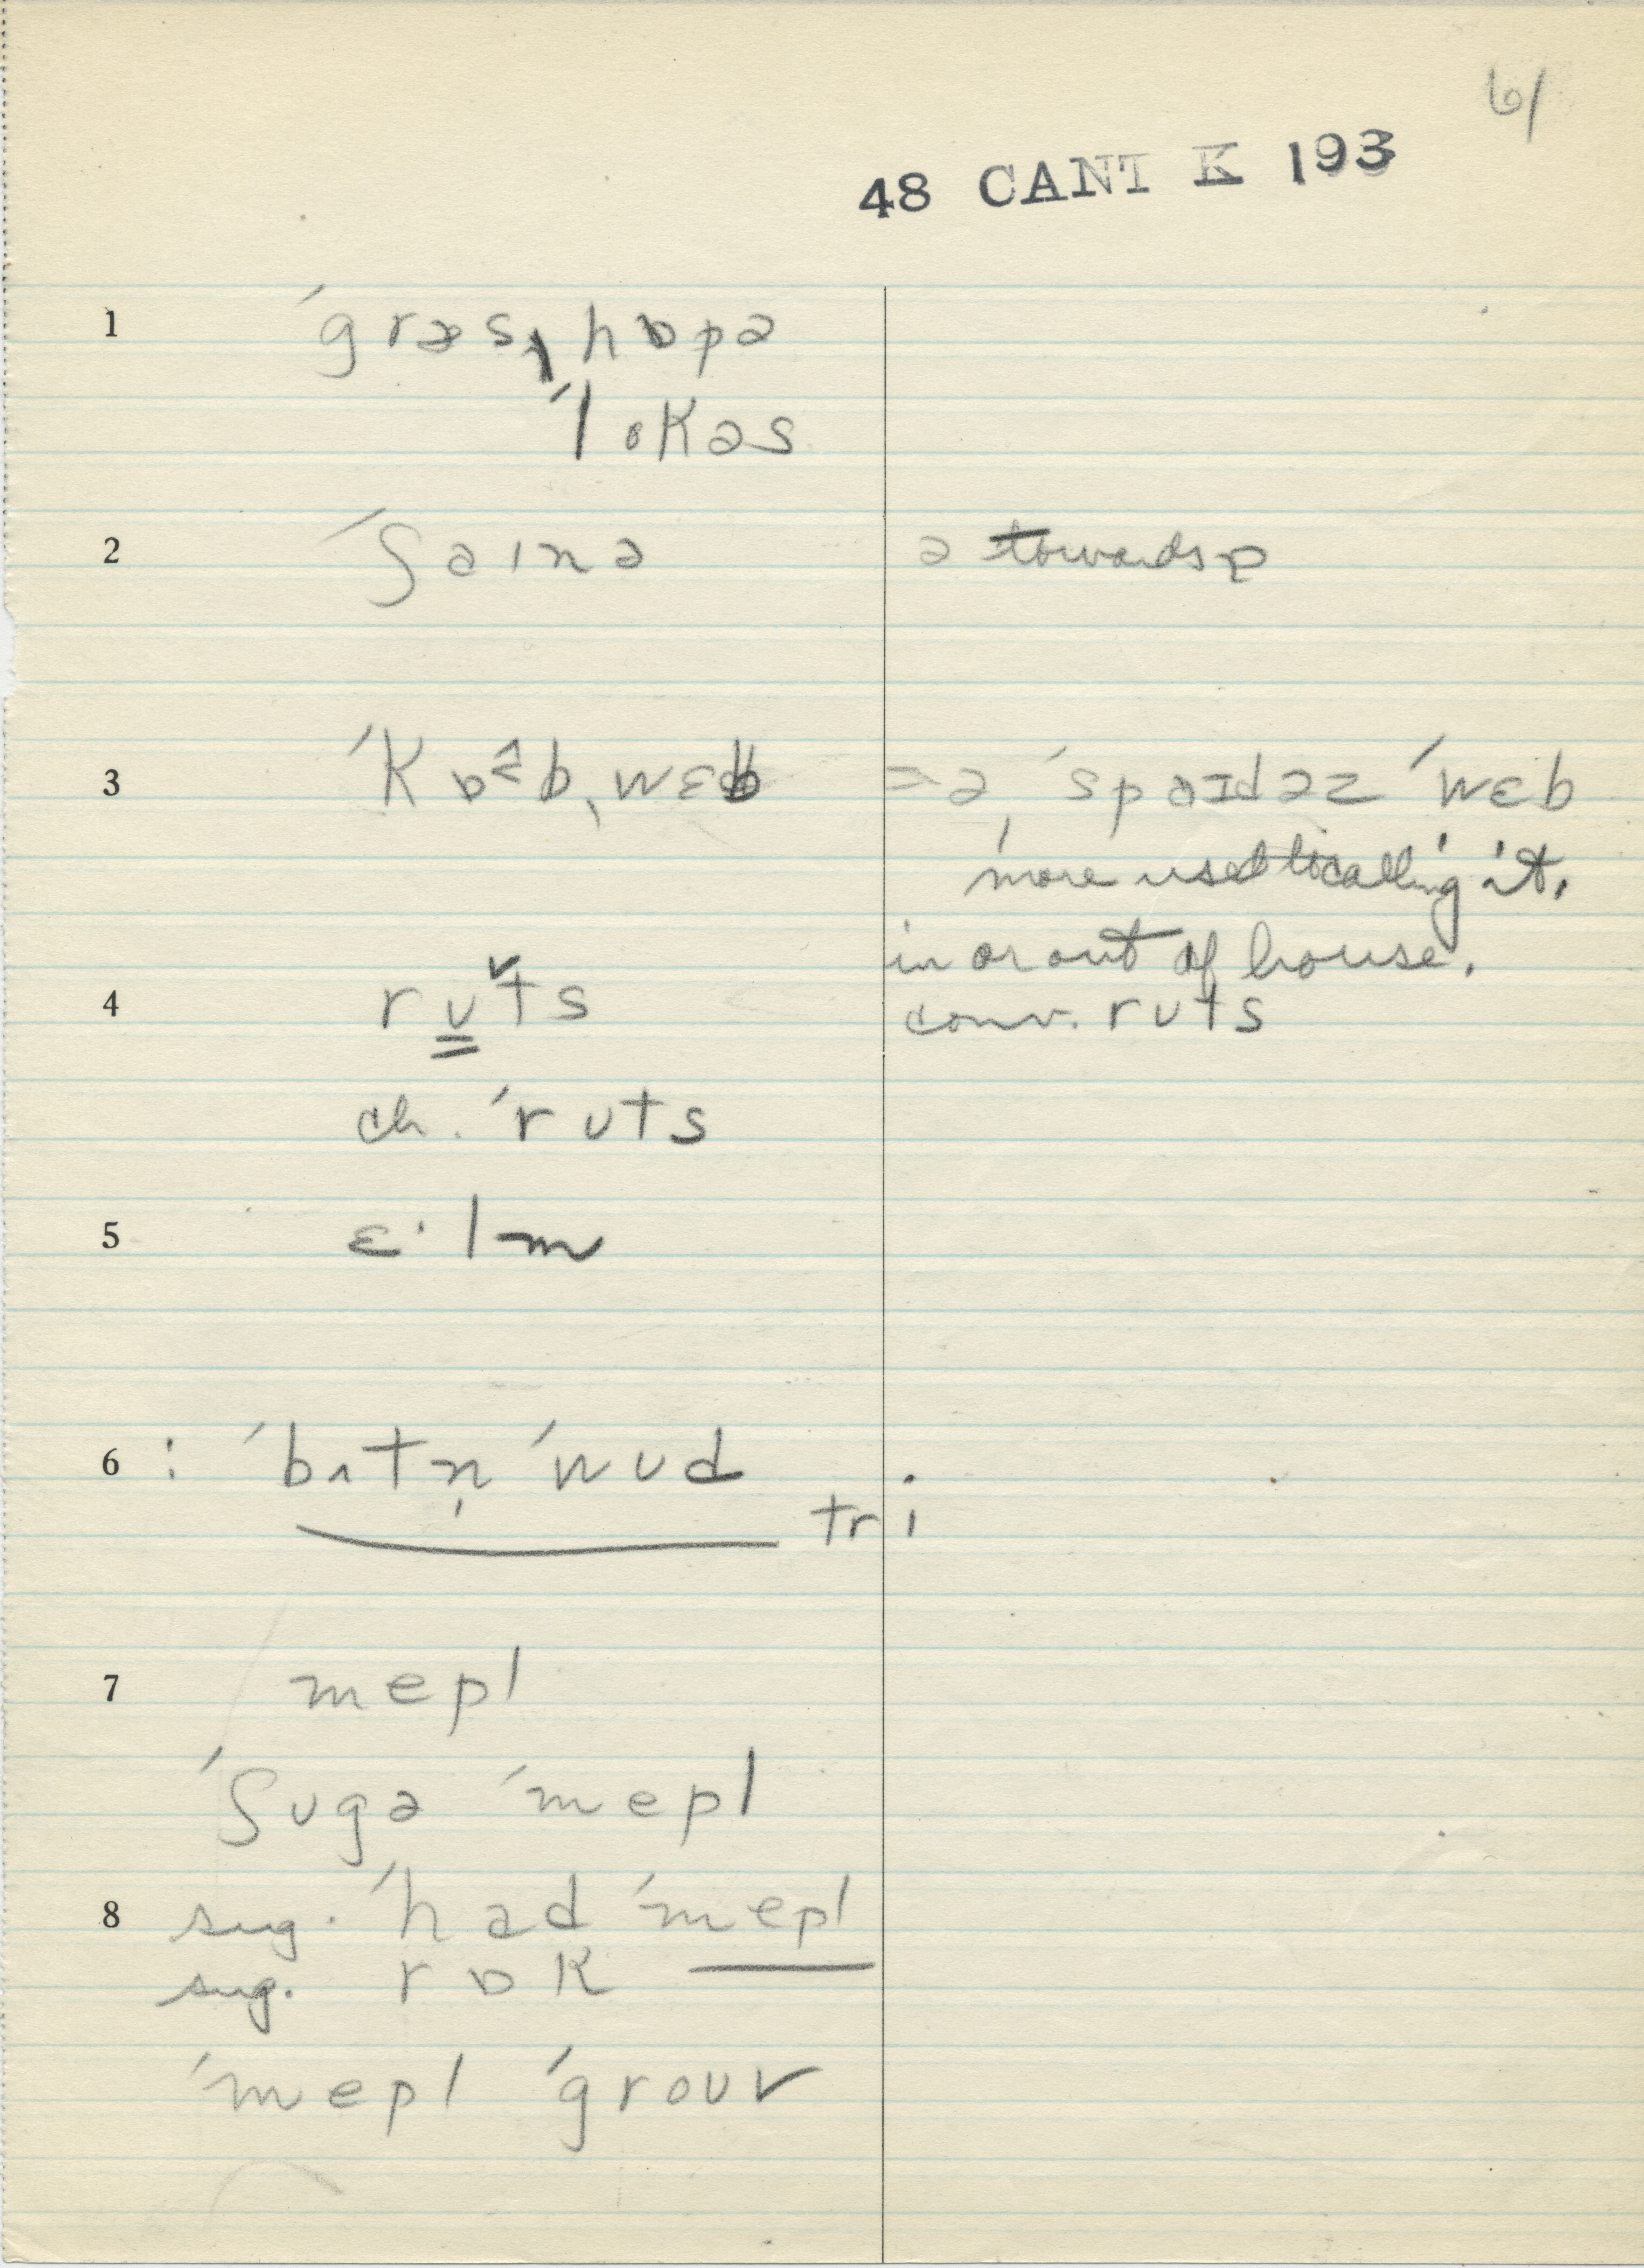 61
48 CANT K 193
1 ˈgræsˌhɒpə
ˈlokəs
2 ˈʃaɪnə ə towards ɒ
3 ˈkɒ˂bˌwɛb = ə ˈspaɪdəz ˈwɛb
more used locally it.
in or out of house.
4 rʊ̲ts conv. rʊts
ch. ˈrʊts
5 ɛ·lm
6 : ˈbʌtn̩ ˈwʊd
tri
7 mepl
ˈʃʊgə ˈmepl
8 sug. ˈhad ˈmepl
sug. rɒk
ˈmepl ˈgroʊv